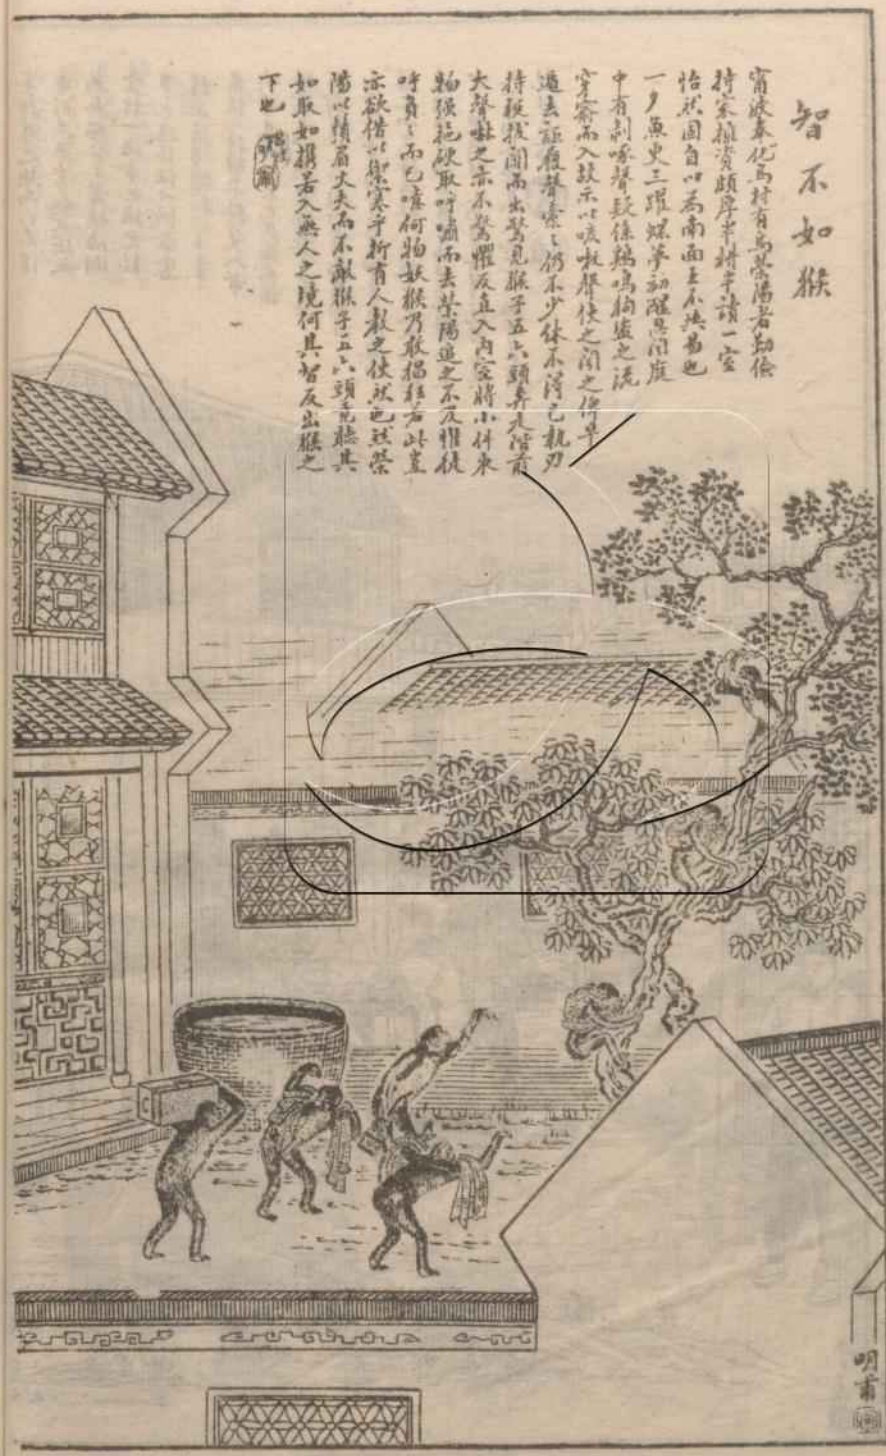 智不如猴
甯波奉化馬村有馬榮陽者勤儉
持家擁資頗厚半耕半讀一室
怡然固自以為南面王不與易也
一夕魚更三躍蝶夢初醒忽聞庭
中有剝啄聲疑係鷄鳴狗盜之流
穿窬而入故示以咳嗽聲使之聞之俾早
遁去詎履聲橐橐仍不少休不得已執刃
持梃拔關而出驚見猴子五六頭奔走階前
大聲嚇之亦不驚懼反直入內室將小件衣
物强拖硬取呼嘯而去榮陽追之不及惟徒
呼負負而已噫何物妖猴乃敢猖狂若此豈
亦欲借以禦寒乎抑有人教之使然也然榮
陽以鬚眉丈夫而不敵猴子五六頭竟聽其
如取如攜若入無人之境何其智反出猴之
下也
明甫